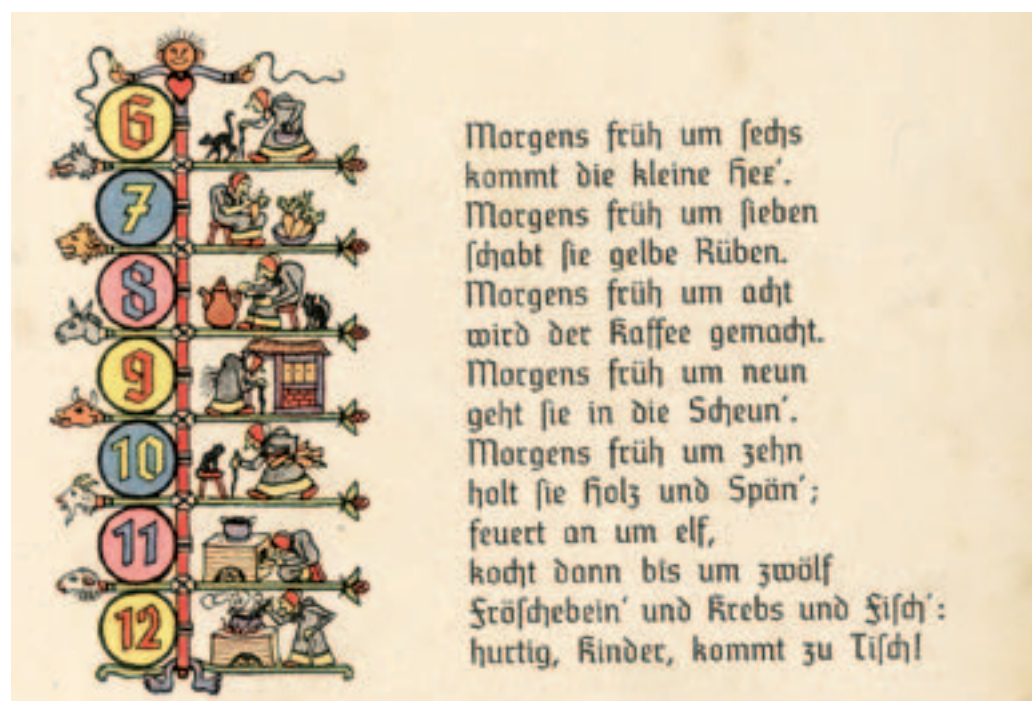 6
7
8
9
10
11
12
Morgens früh um sechs
kommt die kleine Hex'.
Morgens früh um sieben
schabt sie gelbe Rüben.
Morgens früh um acht
wird der Kaffee gemacht.
Morgens früh um neun
geht sie in die Scheun'.
Morgens früh um zehn
holt sie Holz und Spän';
feuert an um elf,
kocht dann bis um zwölf
Fröschebein' und Krebs und Fisch':
hurtig, Kinder, kommt zu Tisch!